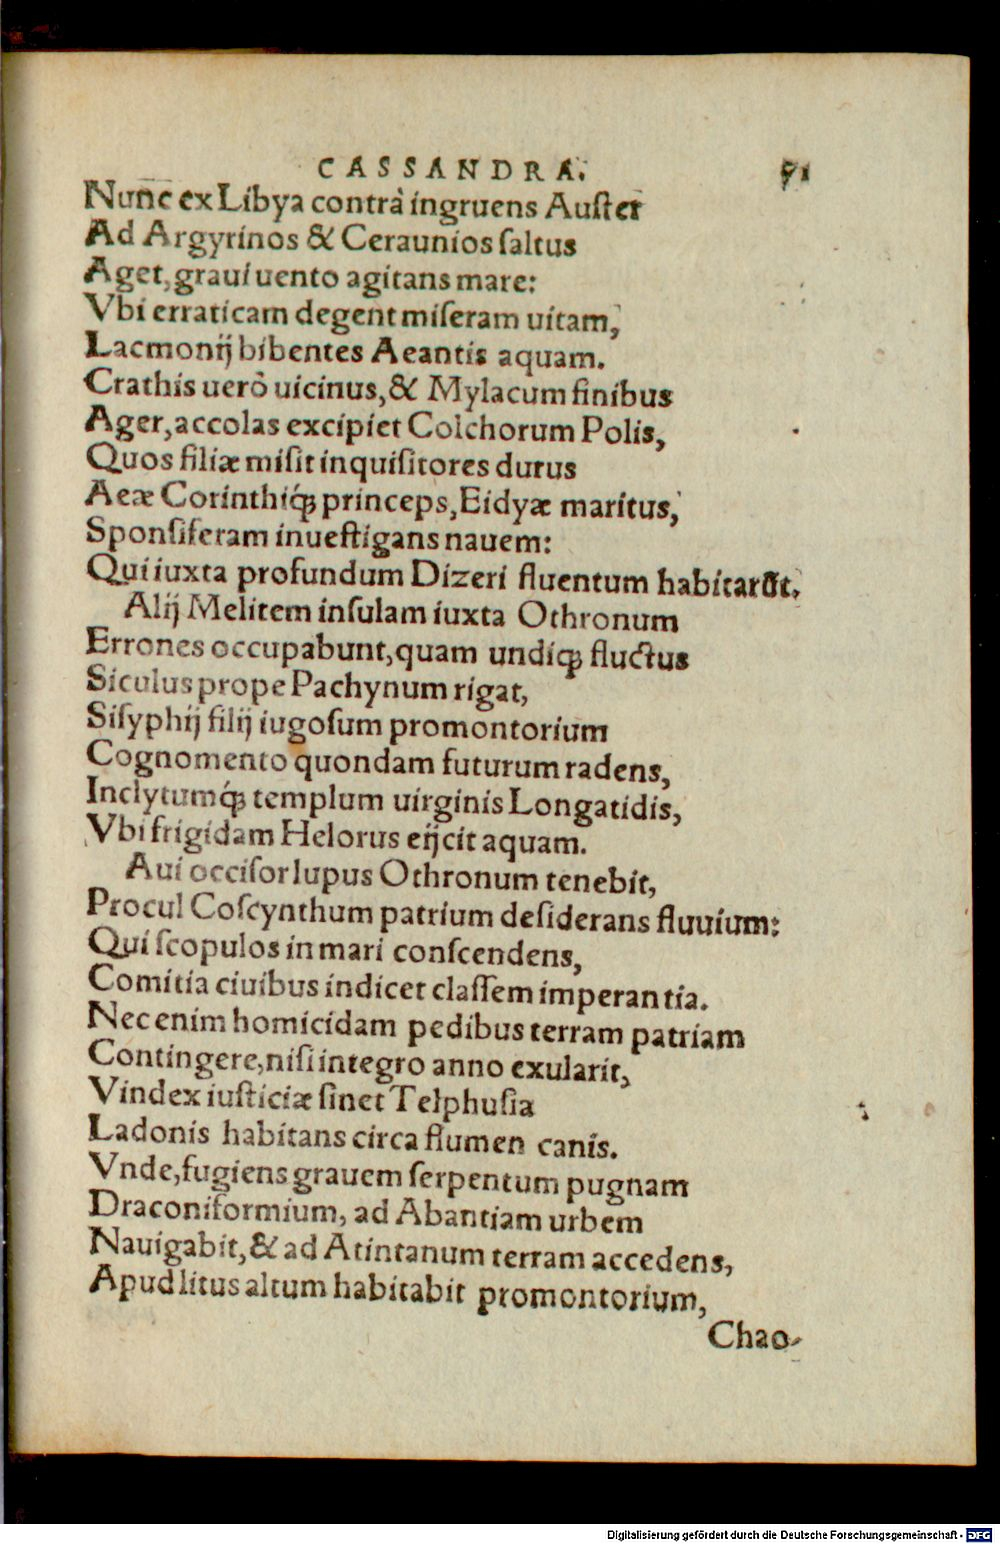 CASSANDRA. 91
Nunc ex Libya contrà ingruens Auſter
Ad Argyrinos & Ceraunios ſaltus
Aget, graui uento agitans mare:
Vbi erraticam degent miſeram uitam,
Lacmonij bibentes Aeantis aquam.
Crathis uerò uicinus, & Mylacum finibus
Ager, accolas excipiet Colchorum Polis,
Quos filiæ miſit inquiſitores durus
Aeæ Corinthiq́; princeps, Eidyæ maritus,
Sponſiferam inueſtigans nauem:
Qui iuxta profundum Dizeri fluentum habitarūt.
Alij Melitem inſulam iuxta Othronum
Errones occupabunt, quam undiq; fluctus
Siculus prope Pachynum rigat,
Siſyphij filij iugoſum promontorium
Cognomento quondam futurum radens,
Inclytumq́; templum uirginis Longatidis,
Vbi frigidam Helorus eijcit aquam.
Aui occiſor lupus Othronum tenebit,
Procul Coſcynthum patrium deſiderans fluuium:
Qui ſcopulos in mari conſcendens,
Comitia ciuibus indicet claſſem imperantia.
Nec enim homicidam pedibus terram patriam
Contingere, niſi integro anno exularit,
Vindex iuſticiæ ſinet Telphuſia
Ladonis habitans circa flumen canis.
Vnde, fugiens grauem ſerpentum pugnam
Draconiformium, ad Abantiam urbem
Nauigabit, & ad Atintanum terram accedens,
Apud litus altum habitabit promontorium,
Chao-
Digitalisierung gefördert durch die Deutsche Forschungsgemeinschaft - DFG